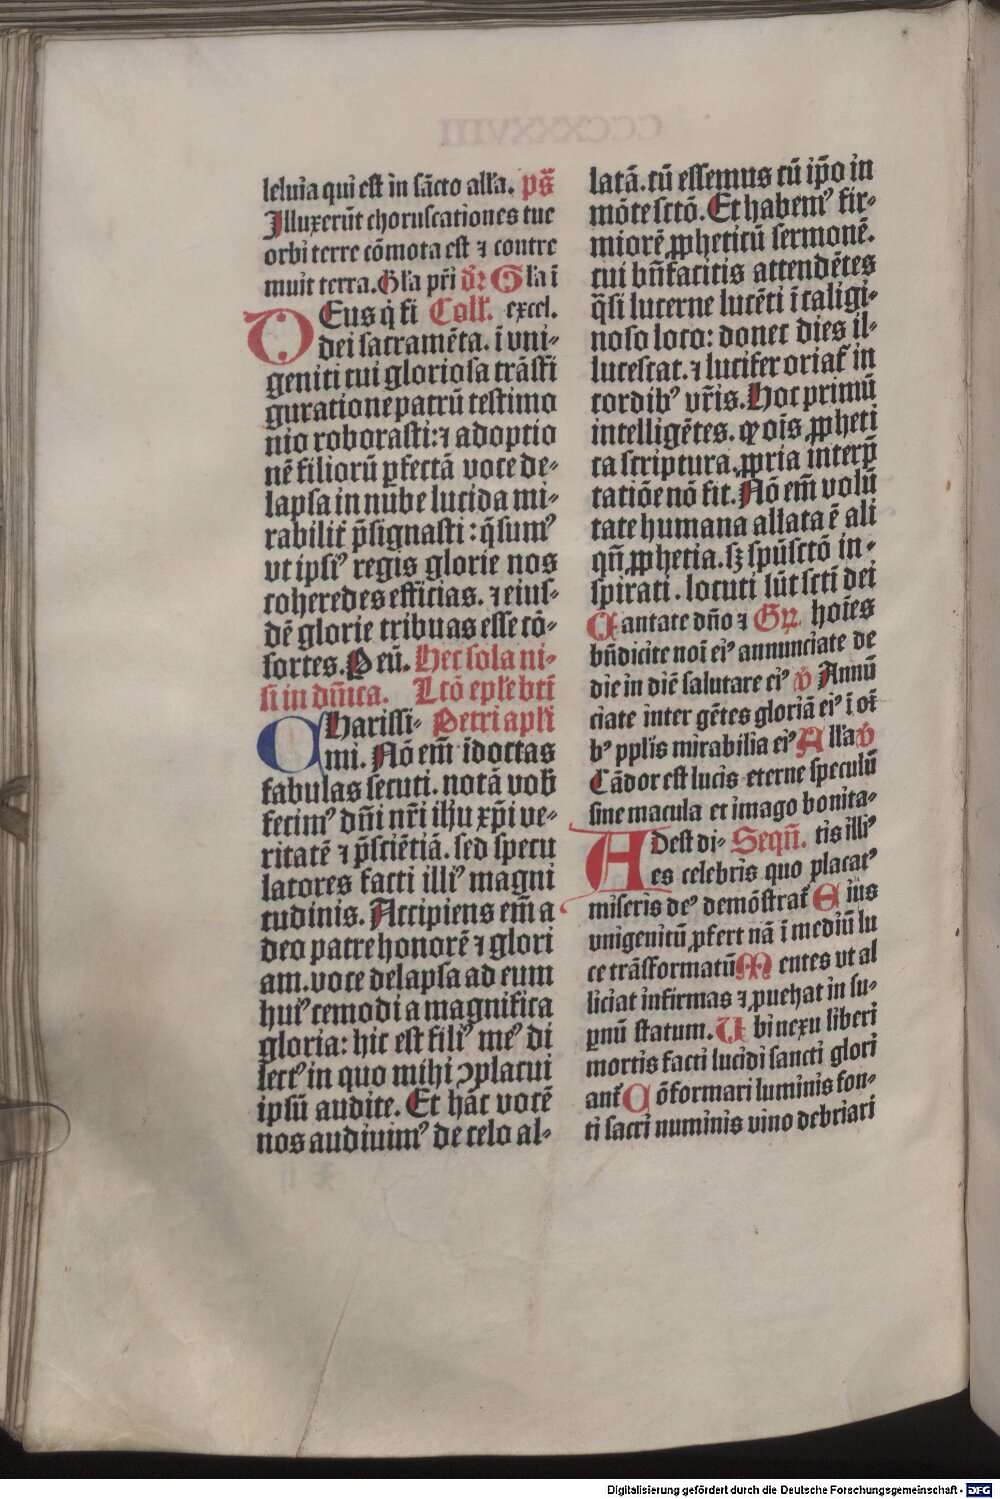 leluia qui est in sācto all'a. ps̄
Illuxerūt choruscationes tue
orbi terre cōmota est ⁊ contre
muit terra. Gl'a pr̄i dr̄ Gl'a ī
DEus q̇ fi Coll'. excel.
dei sacramēta. ī vni-
geniti tui gloriosa trāsfi
guratione patrū testimo
nio roborasti: ⁊ adoptio
nē filiorū ꝑfectā voce de-
lapsa in nube lucida mi-
rabilit̄ p̄signasti: q̄sumꝰ
vt ipsiꝰ regis glorie nos
coheredes efficias. ⁊ eius-
dē glorie tribuas esse cō-
sortes. P eū. Hec sola ni-
si in dn̄ica. Lcō epl'e bt̄i
CHarissi- Petri apl'i
mi. Nō em̄ idoctas
fabulas secuti. notā vob̄
fecimꝰ dn̄i nr̄i ihu xp̄i ve-
ritatē ⁊ p̄sciētiā. sed specu
latores facti illiꝰ magni
tudinis. Accipiens em̄ a
deo patre honorē ⁊ glori
am. voce delapsa ad eum
huiꝰcemodi a magnifica
gloria: hic est filiꝰ meꝰ di
lectꝰ in quo mihi ↄplacui
ipsū audite. Et hāc vocē
nos audiuimꝰ de celo al-
latā. cū essemus cū ip̄o in
mōte sctō. Et habemꝰ fir-
miorē ꝓpheticū sermonē.
cui bn̄facitis attendētes
q̄si lucerne lucēti ī caligi-
noso loco: donec dies il-
lucescat. ⁊ lucifer oriat̄ in
cordibꝰ vr̄is. Hoc primū
intelligētes. qꝫ oīs ꝓpheti
ca scriptura. ꝓpria interp̄
tatiōe nō fit. Nō em̄ volū
tate humana allata ē ali
qn̄ ꝓphetia. sꝫ spūsctō in-
spirati. locuti sūt scti dei
Cantate dn̄o ⁊ Gr̄. hoīes
bn̄dicite noī eiꝰ annunciate de
die in diē salutare eiꝰ v̄ Annū
ciate inter gētes gloriā eiꝰ ī oī
bꝰ ppl'is mirabilia eiꝰ All'a v̄
Cādor est lucis eterne speculū
sine macula et imago bonita-
ADest di- Seqn̄. tis illiꝰ
es celebris quo placatꝰ
miseris deꝰ demōstrat̄ Eius
vnigenitū ꝓfert nā ī mediū lu
ce trāsformatū Mentes vt al
liciat infirmas ⁊ ꝓuehat in su-
ꝑnū statum. Vbi nexu liberi
mortis facti lucidi sancti glori
ant̄ Cōformari luminis fon-
ti sacri numinis vino debriari
Digitalisierung gefördert durch die Deutsche Forschungsgemeinschaft - DFG